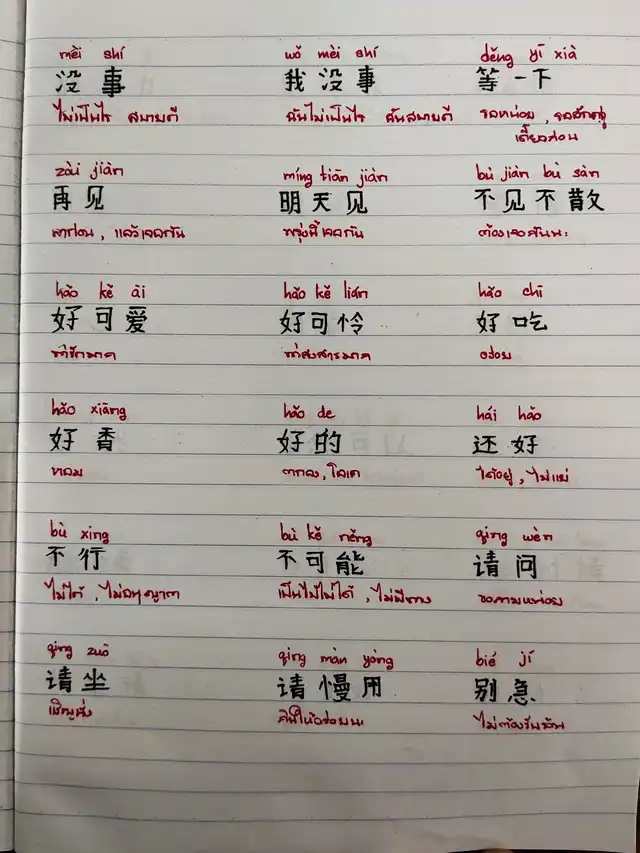 mèi shí wǒ mèi shí děng yī xià
没 事 我 没 事 等 一 下
ไม่เป็นไร สบายดี ฉันไม่เป็นไร ฉันสบายดี รอหน่อย , รอสักครู่
เดี๋ยวก่อน
zài jiàn míng tiān jiàn bù jiàn bù sàn
再 见 明 天 见 不 见 不 散
ลาก่อน , แล้วเจอกัน พรุ่งนี้เจอกัน ต้องเจอกันนะ
hǎo kě ài hǎo kě lián hǎo chī
好 可 爱 好 可 怜 好 吃
น่ารักมาก น่าสงสารมาก อร่อย
hǎo xiāng hǎo de hái hǎo
好 香 好 的 还 好
หอม ตกลง , โอเค ได้อยู่ , ไม่แย่
bù xíng bù kě něng qǐng wèn
不 行 不 可 能 请 问
ไม่ได้ , ไม่อนุญาต เป็นไปไม่ได้ , ไม่มีทาง ขอถามหน่อย
qǐng zuò qǐng màn yòng bié jí
请 坐 请 慢 用 别 急
เชิญนั่ง กินให้อร่อยนะ ไม่ต้องรีบร้อน